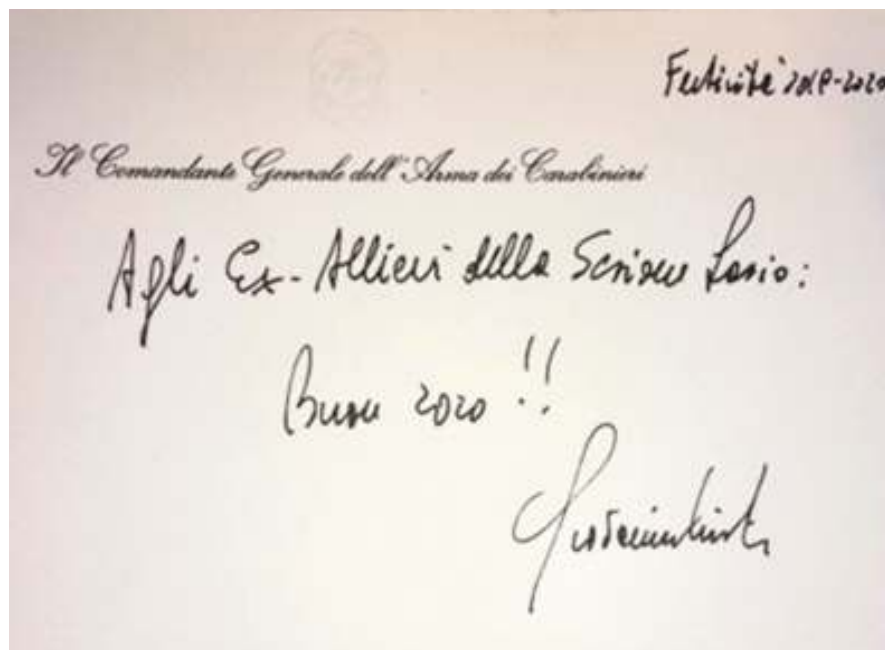 Festività 2019-2020
Il Comandante Generale dell'Arma dei Carabinieri
Agli Ex-Allievi della Sezione Lazio:
Buon 2020!!